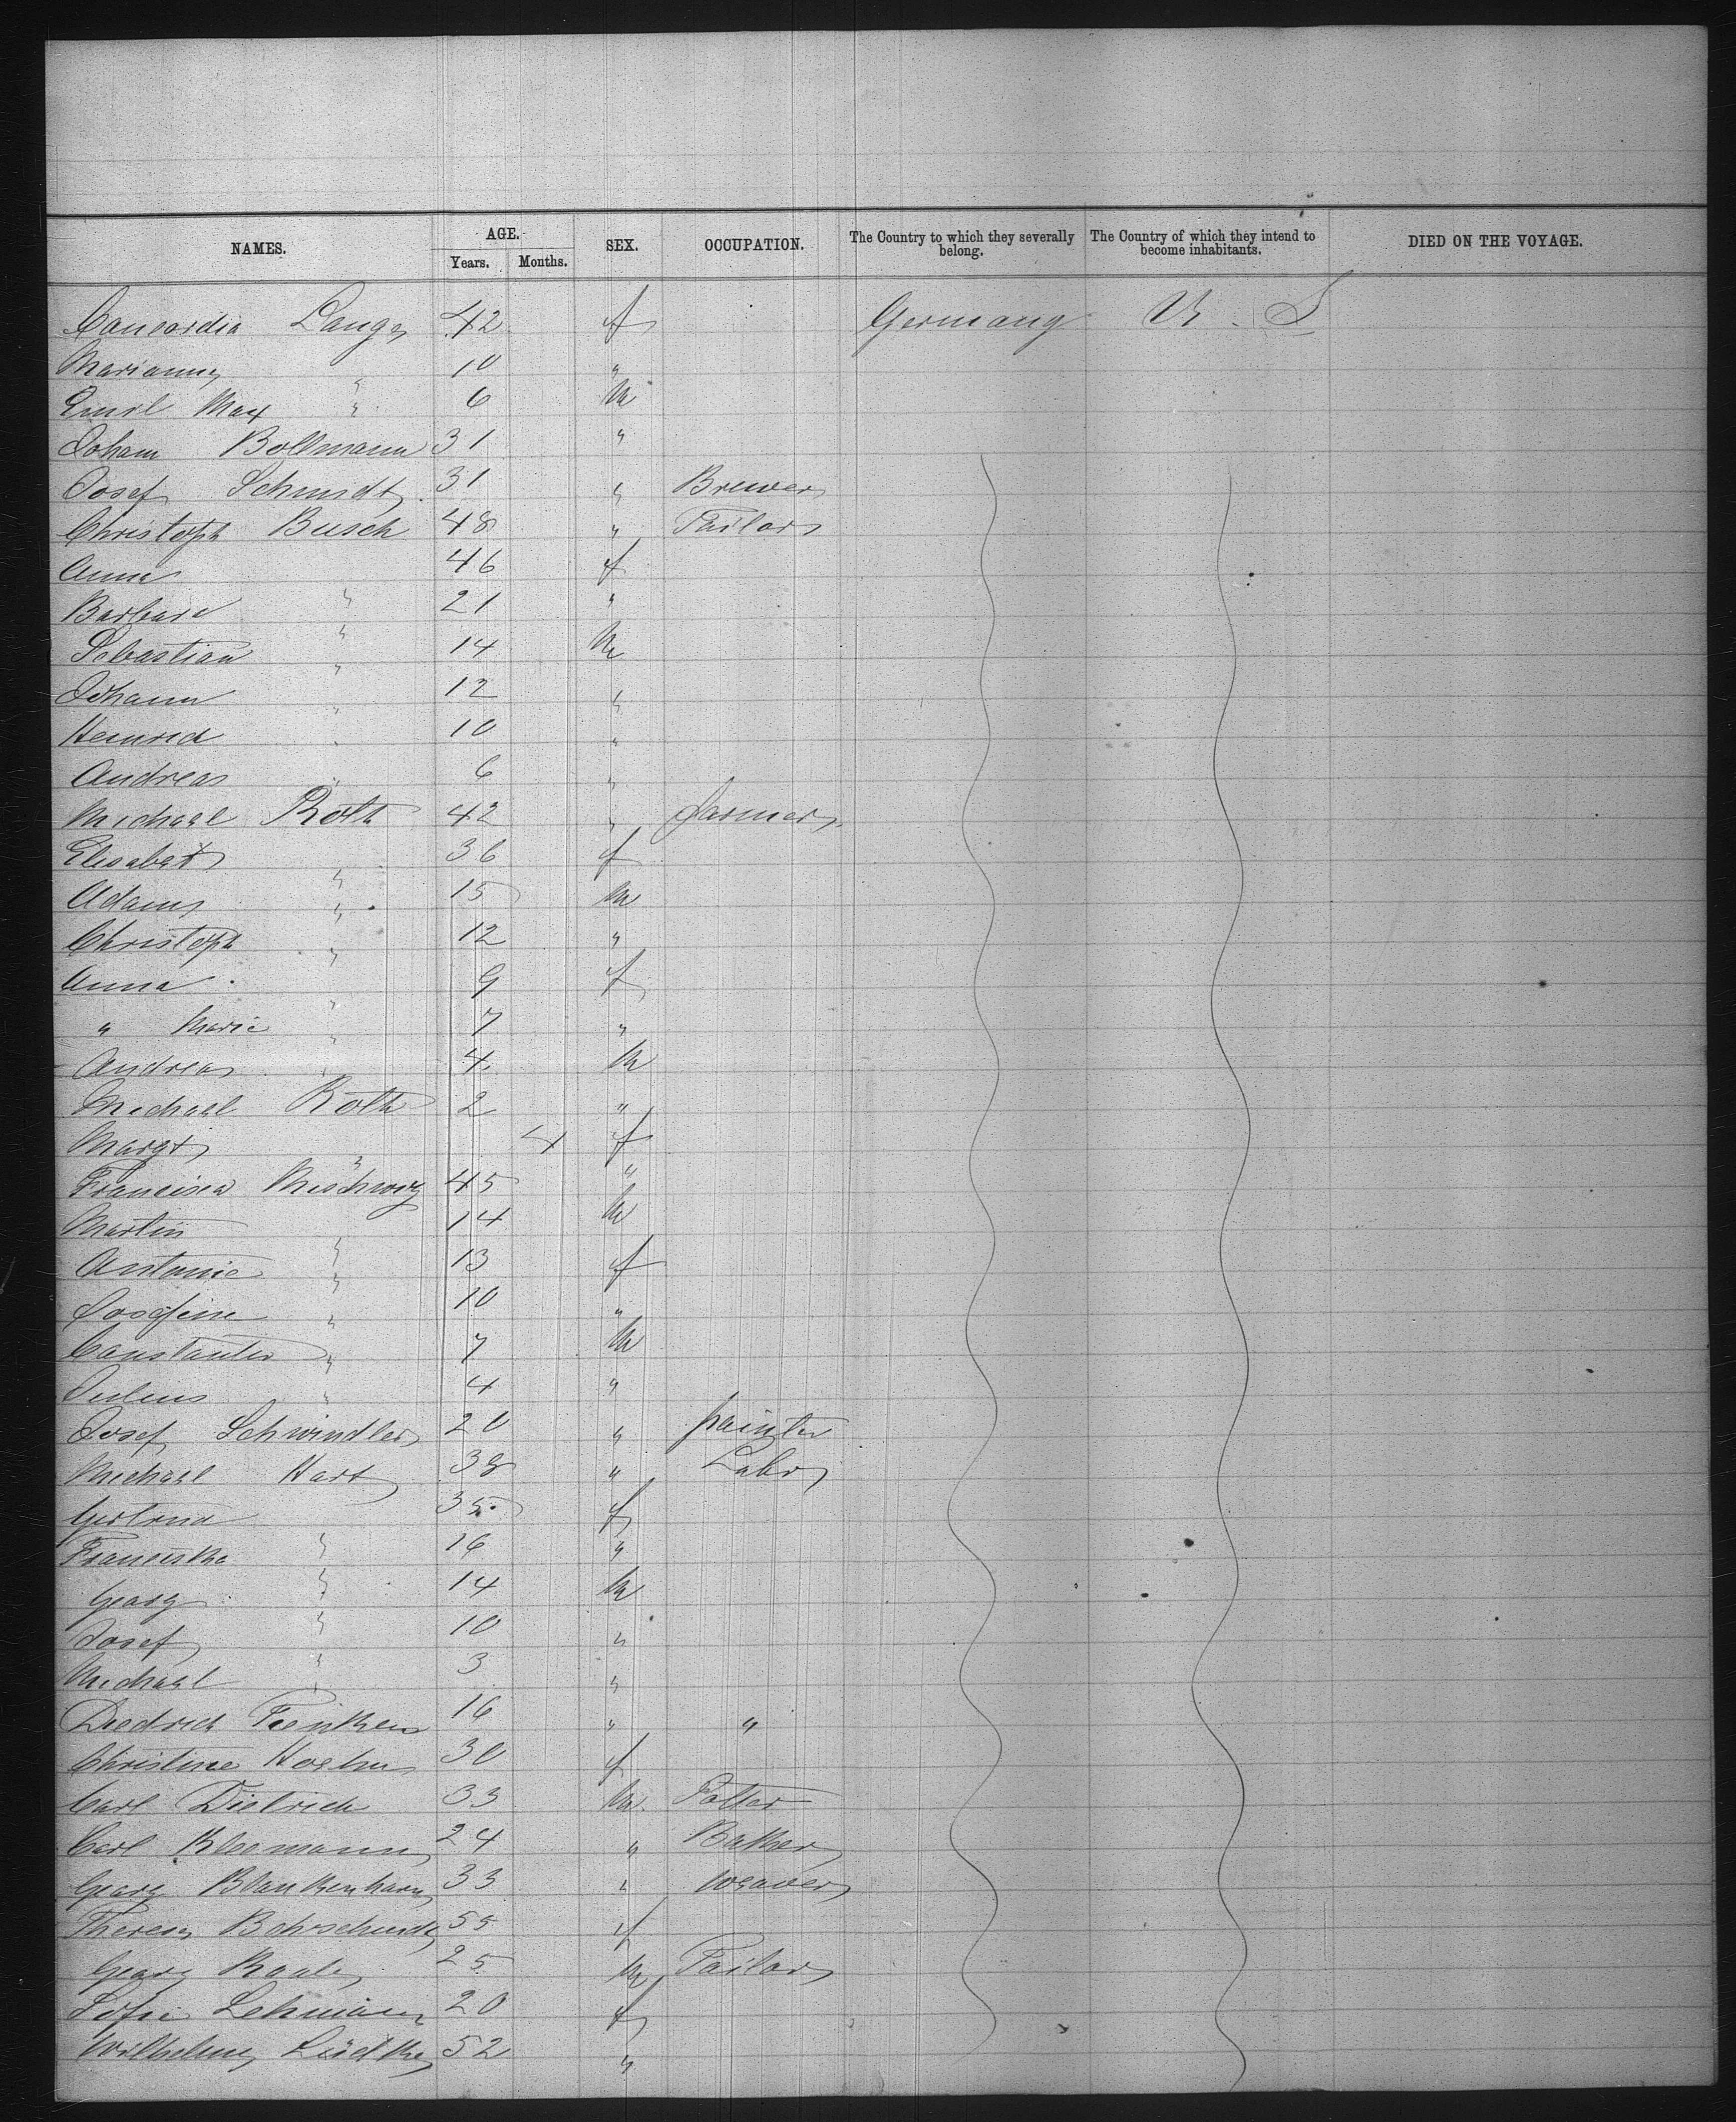 NAMES. AGE. SEX. OCCUPATION. The Country to which they severally belong. The Country of which they intend to become inhabitants. DIED ON THE VOYAGE.
Years. Months.
Concordia Lange 42 f Germany U. S
Marianne " 10 "
Emil Max " 6 M
Johann Bollmann 31 "
Josef Schmidt 31 " Brewer
Christoph Busch 48 " Tailor
Anna " 46 f
Barbara " 21 "
Sebastian " 14 M
Johann " 12 "
Heinrich " 10 "
Andreas " 6 "
Michael Roth 42 " farmer
Elisabet " 36 f
Adam " 15 M
Christoph " 12 "
Anna " 9 f
" Marie " 7 "
Andreas " 4 M
Michael Roth 2 "
Margt " 4 f
Francisca 45 "
Martin " 14 M
Antonie " 13 f
Josefine " 10 "
Constantin " 7 M
Julius " 4 "
Josef Schwindler 20 " painter
Michael Hart 38 " Labr
Gertrud " 35 f
Franciska " 16 "
Georg " 14 M
Josef " 10 "
Michael " 3 "
Diedrich 16 " "
Christine 30 f
Carl Dietrich 33 M Potter
Carl Kleemann 24 " Baker
Georg Blankenhorn 33 " weaver
Theresa 55 f
Georg 25 M Tailor
Sofie Lehmann 20 f
Wilhelmine Lüdtke 52 "